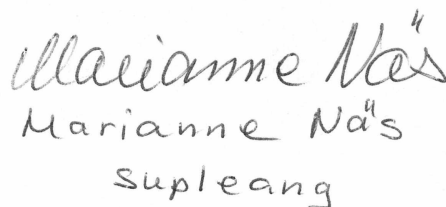 Marianne Näs
Marianne Näs
supleang